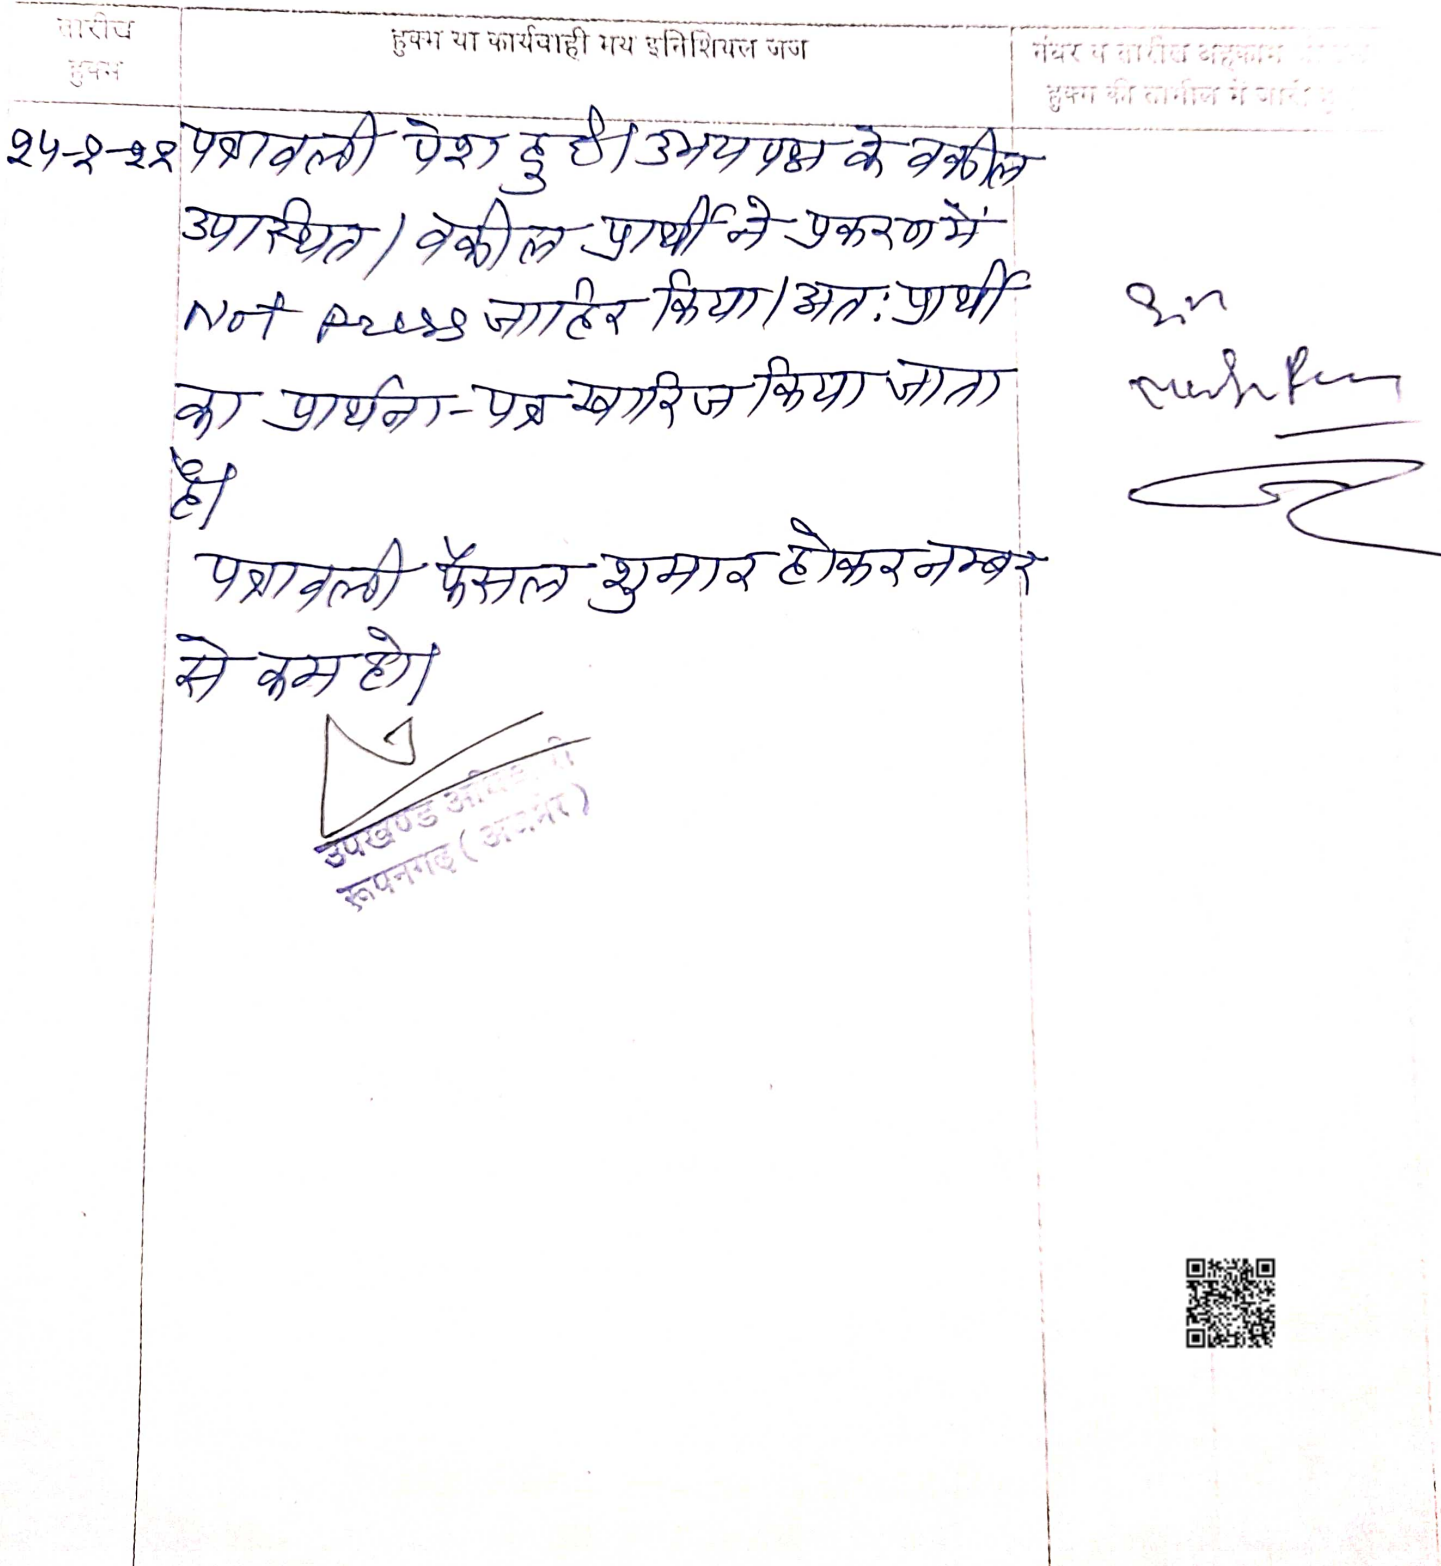 तारीख
हुक्म
हुक्म या कार्यवाही मय इनिशियल जज
नंबर व तारीख अहकाम
हुक्म की तामील में जारी
पत्रावली पेश हुई। उभय पक्ष के वकील
उपास्थित। वकील प्रार्थी ने प्रकरण में
Not press जाहिर किया। अतः प्रार्थी
का प्रार्थना-पत्र खारिज किया जाता
है।
पत्रावली फैसल शुमार होकर नम्बर
से कम हो।
उपखण्ड
रूपनगढ़ (अजमेर)